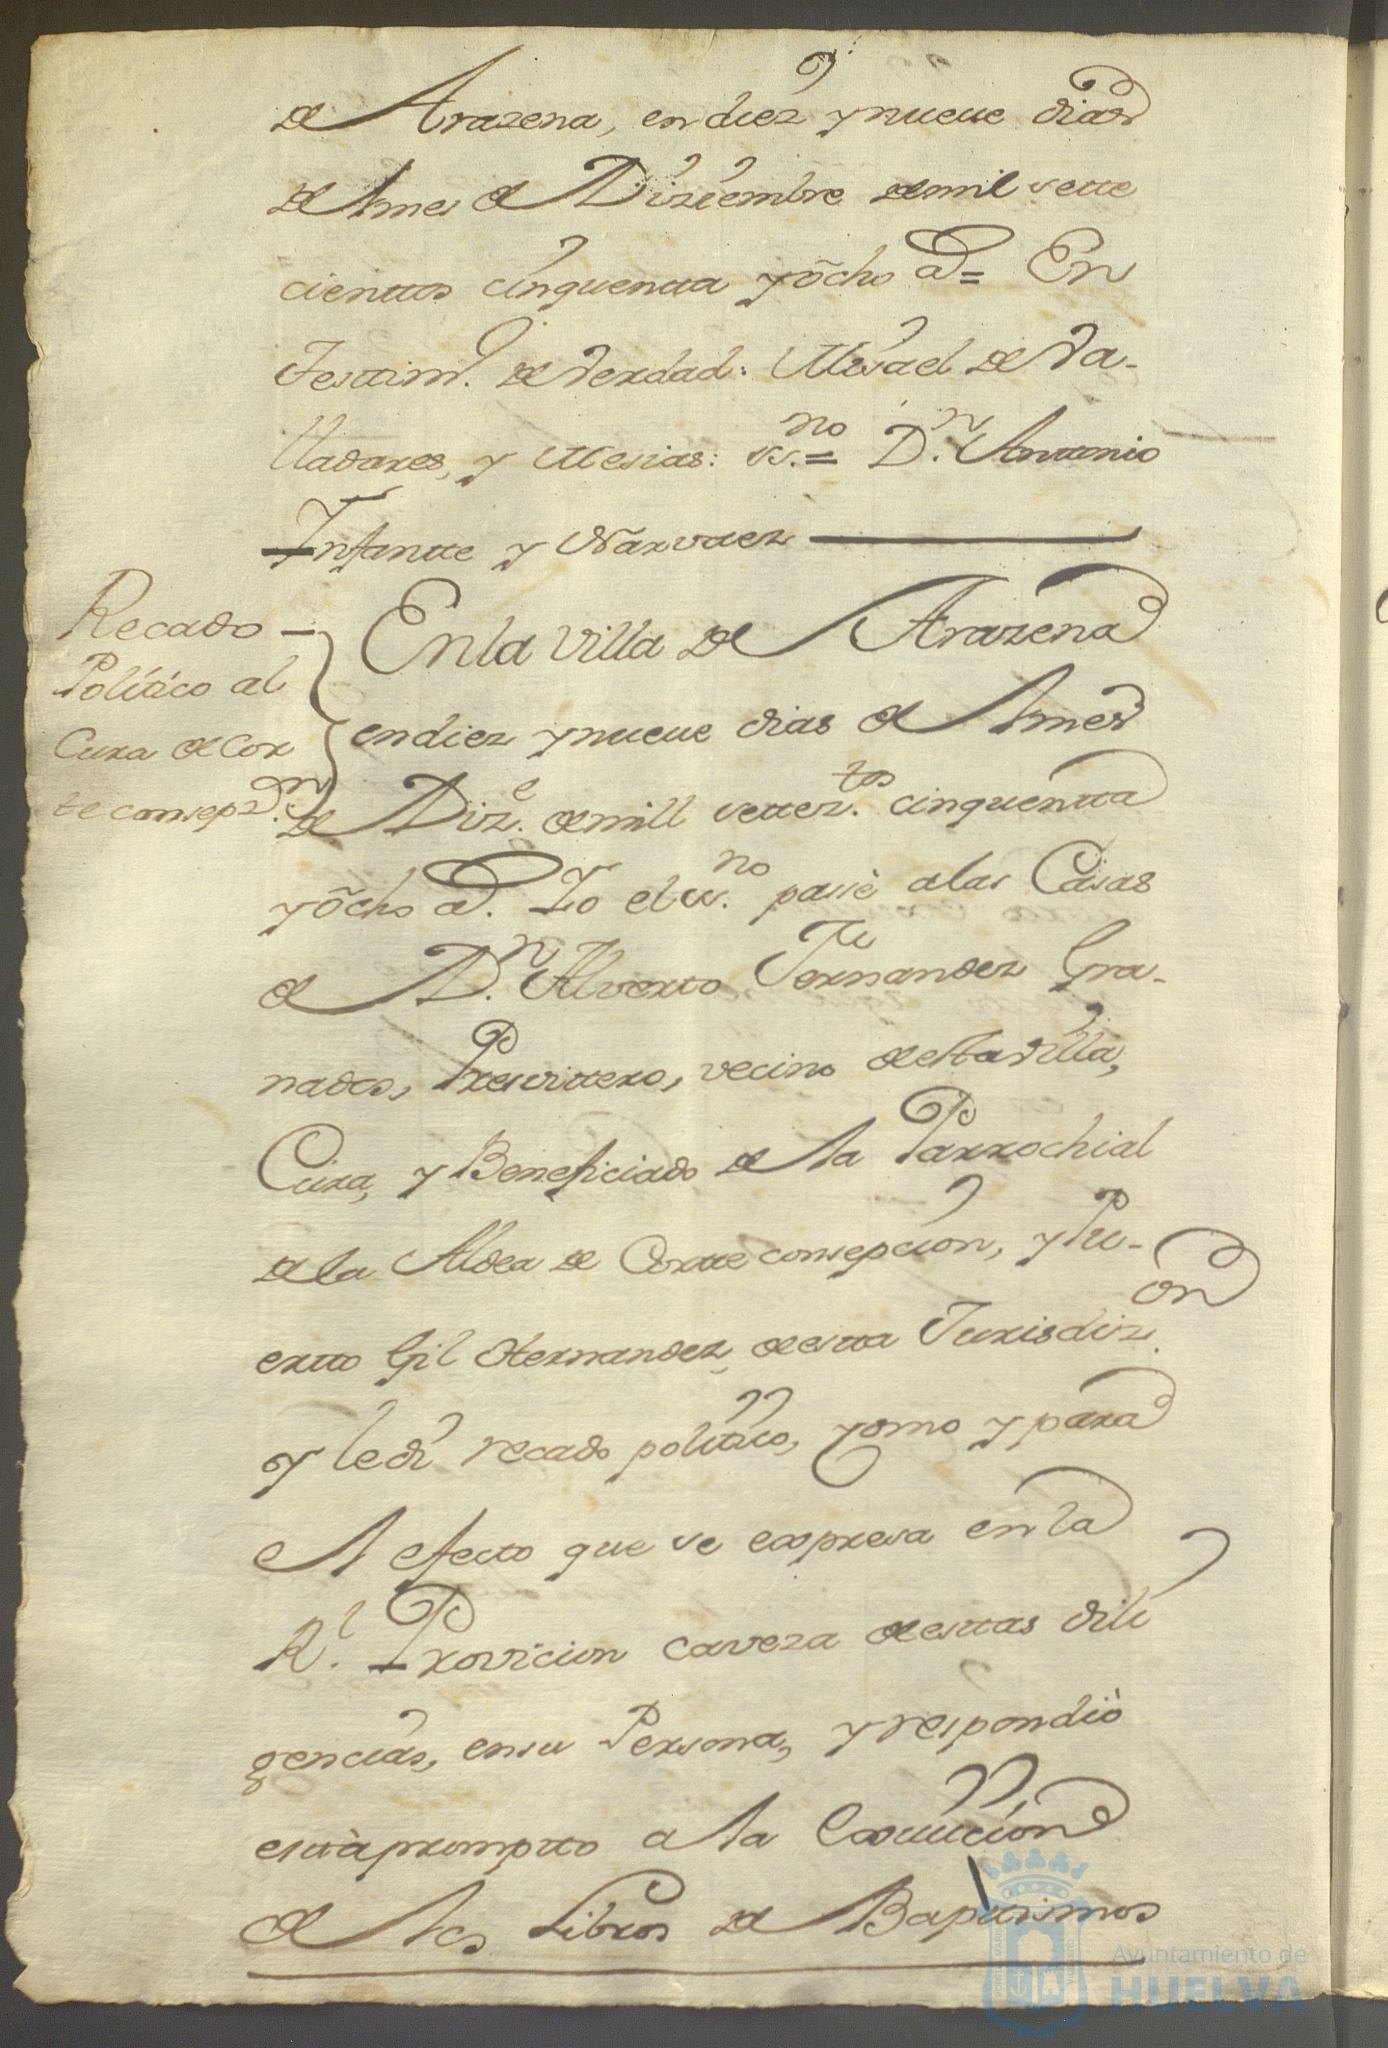 de Arazena, en diez y nueve dias
del mes de Diziembre de mil sette
cienttos cinquentta y ocho a.s = En
Testtim.o de Verdad: Misael de Va-
lladares, y Mesias: ss.no = D.n Antonio
Infantte y Narvaez
Recado
Político al
Cura de Cor
te consepz.on
En la Villa de Arazena
en diez y nueve dias del mes
de Diz.e de mill settez.tos cinquentta
y ocho a.s Yo el ss.no passè a las Casas
de D.n Alverto Fernandez Gra-
nados, Presvittero, vecino de esta Villa,
Cura, y Beneficiado de la Parrochial
de la Aldea de Corte consepcion, y Pu-
ertto Gil Hernandez, de estta Jurisdiz.on
y le di recado político, como y para
el efecto que se expresa en la
R.l Provicion caveza de esttas dili
gencias, en su Persona, y respondiò
esttà promptto a la Exivicion
de los Libros de Baptismos
Ayuntamiento de
HUELVA